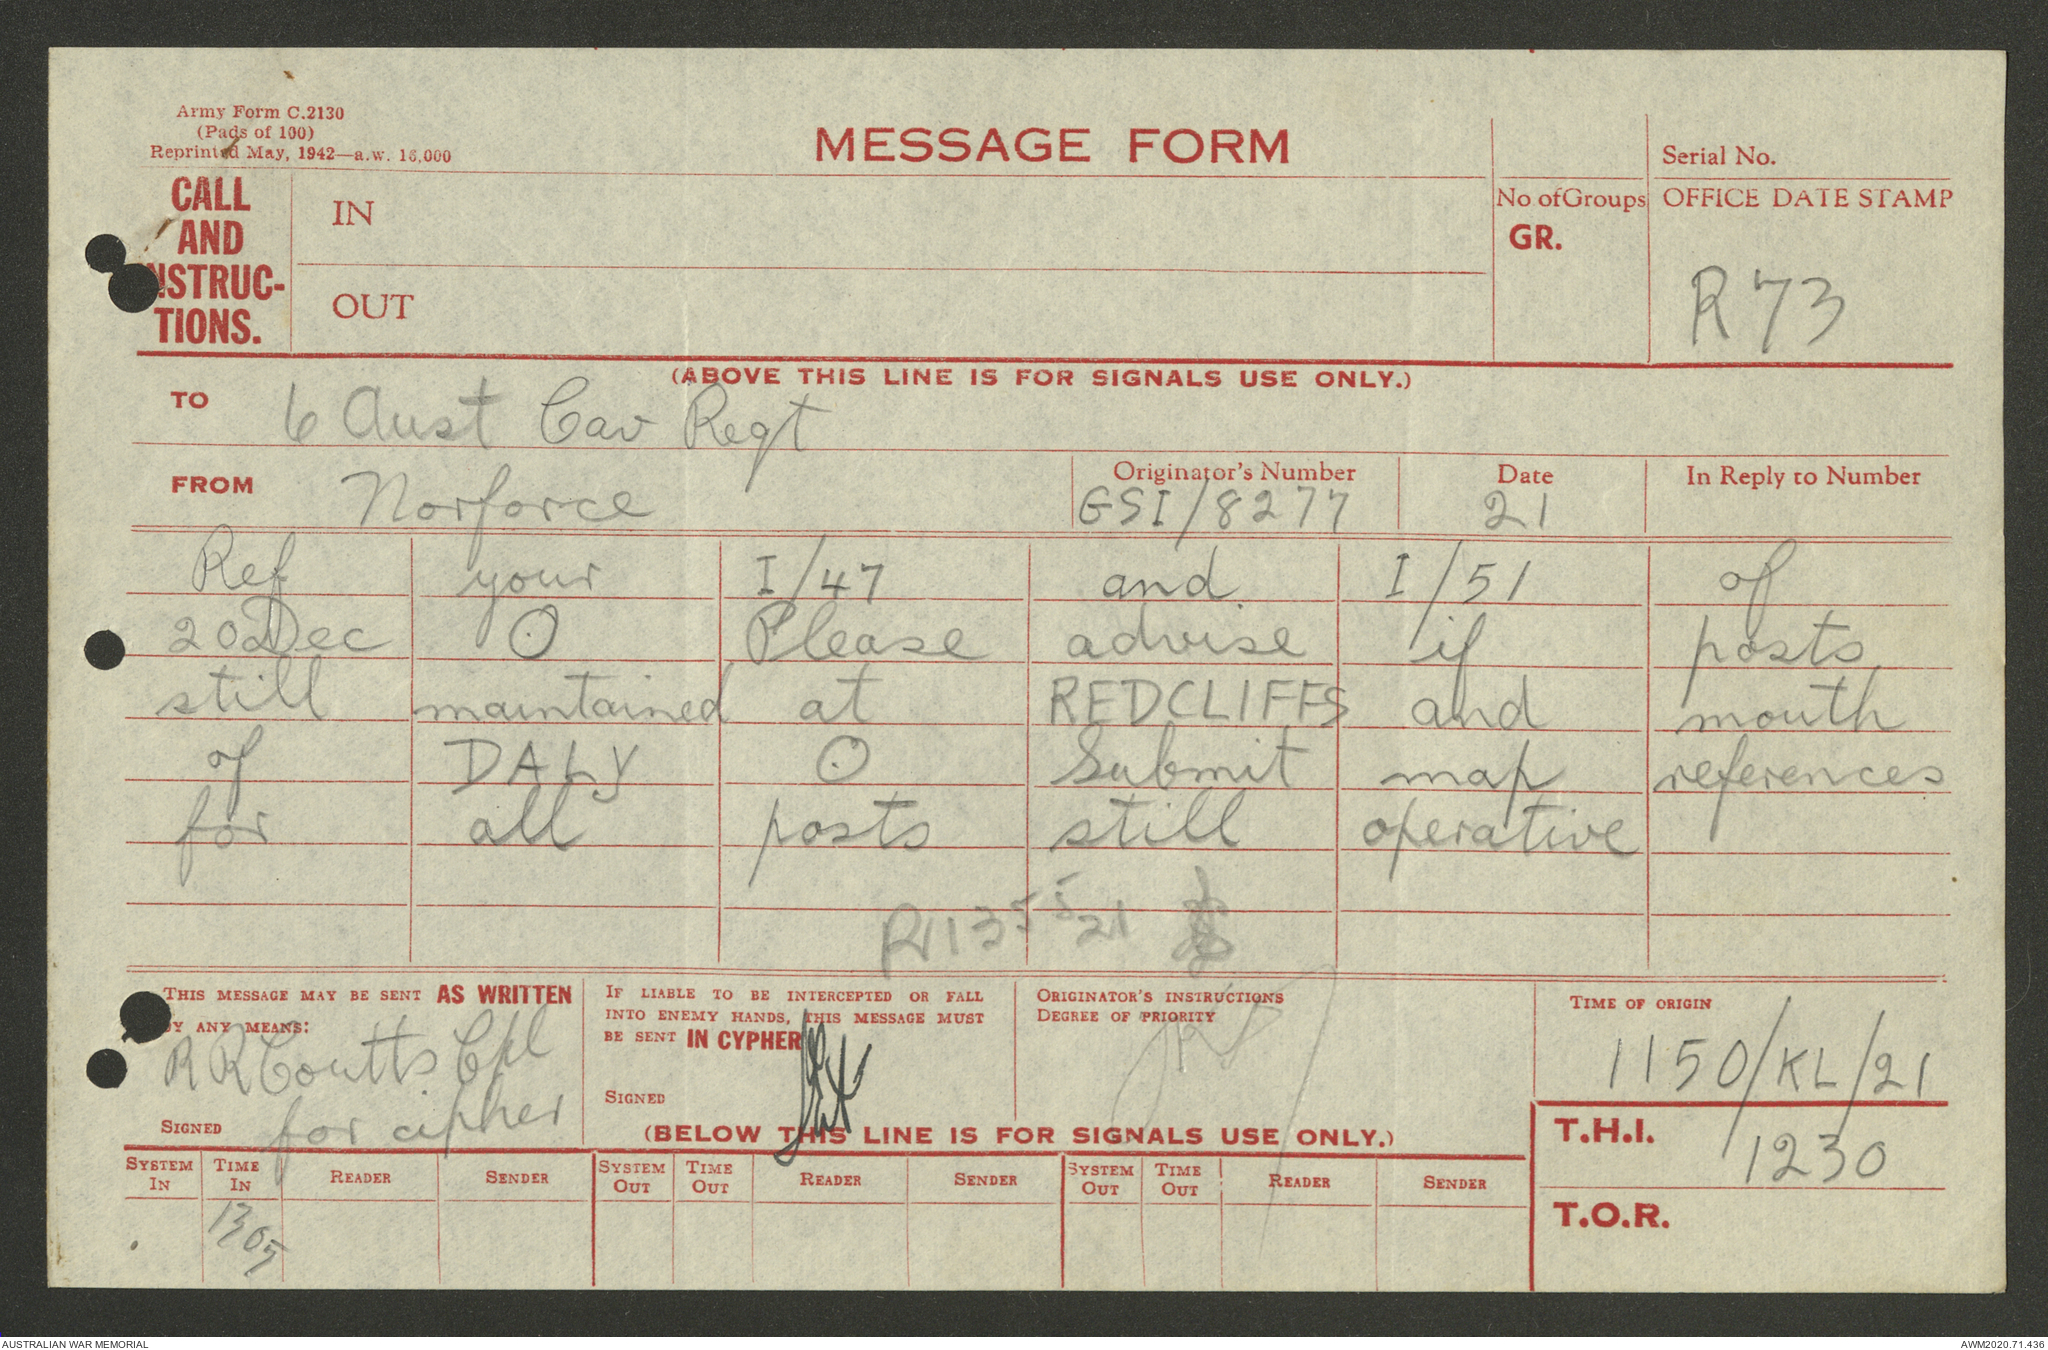 Army Form C.2130
(Pads of 100)
Reprinted May, 1942—a.w. 16,000
MESSAGE FORM
Serial No.
CALL AND INSTRUC-TIONS.
IN
OUT
No of Groups
GR.
OFFICE DATE STAMP
R 73
(ABOVE THIS LINE IS FOR SIGNALS USE ONLY.)
TO 6 Aust Cav Regt
FROM Norforce
Originator's Number GSI/8277
Date 21
In Reply to Number
Ref your I/47 and I/51 of
20 Dec O Please advise if posts
still maintained at REDCLIFFS and mouth
of DALY O Submit map references
for all posts still operative
R1135 5/21
THIS MESSAGE MAY BE SENT AS WRITTEN
BY ANY MEANS:
R R Coutts Cpl
for cipher
SIGNED
IF LIABLE TO BE INTERCEPTED OR FALL
INTO ENEMY HANDS, THIS MESSAGE MUST
BE SENT IN CYPHER
SIGNED
ORIGINATOR'S INSTRUCTIONS
DEGREE OF PRIORITY
TIME OF ORIGIN
1150/KL/21
(BELOW THIS LINE IS FOR SIGNALS USE ONLY.)
T.H.I. 1230
T.O.R.
SYSTEM IN TIME IN READER SENDER SYSTEM OUT TIME OUT READER SENDER SYSTEM OUT TIME OUT READER SENDER
1305
AUSTRALIAN WAR MEMORIAL
AWM2020.71.436